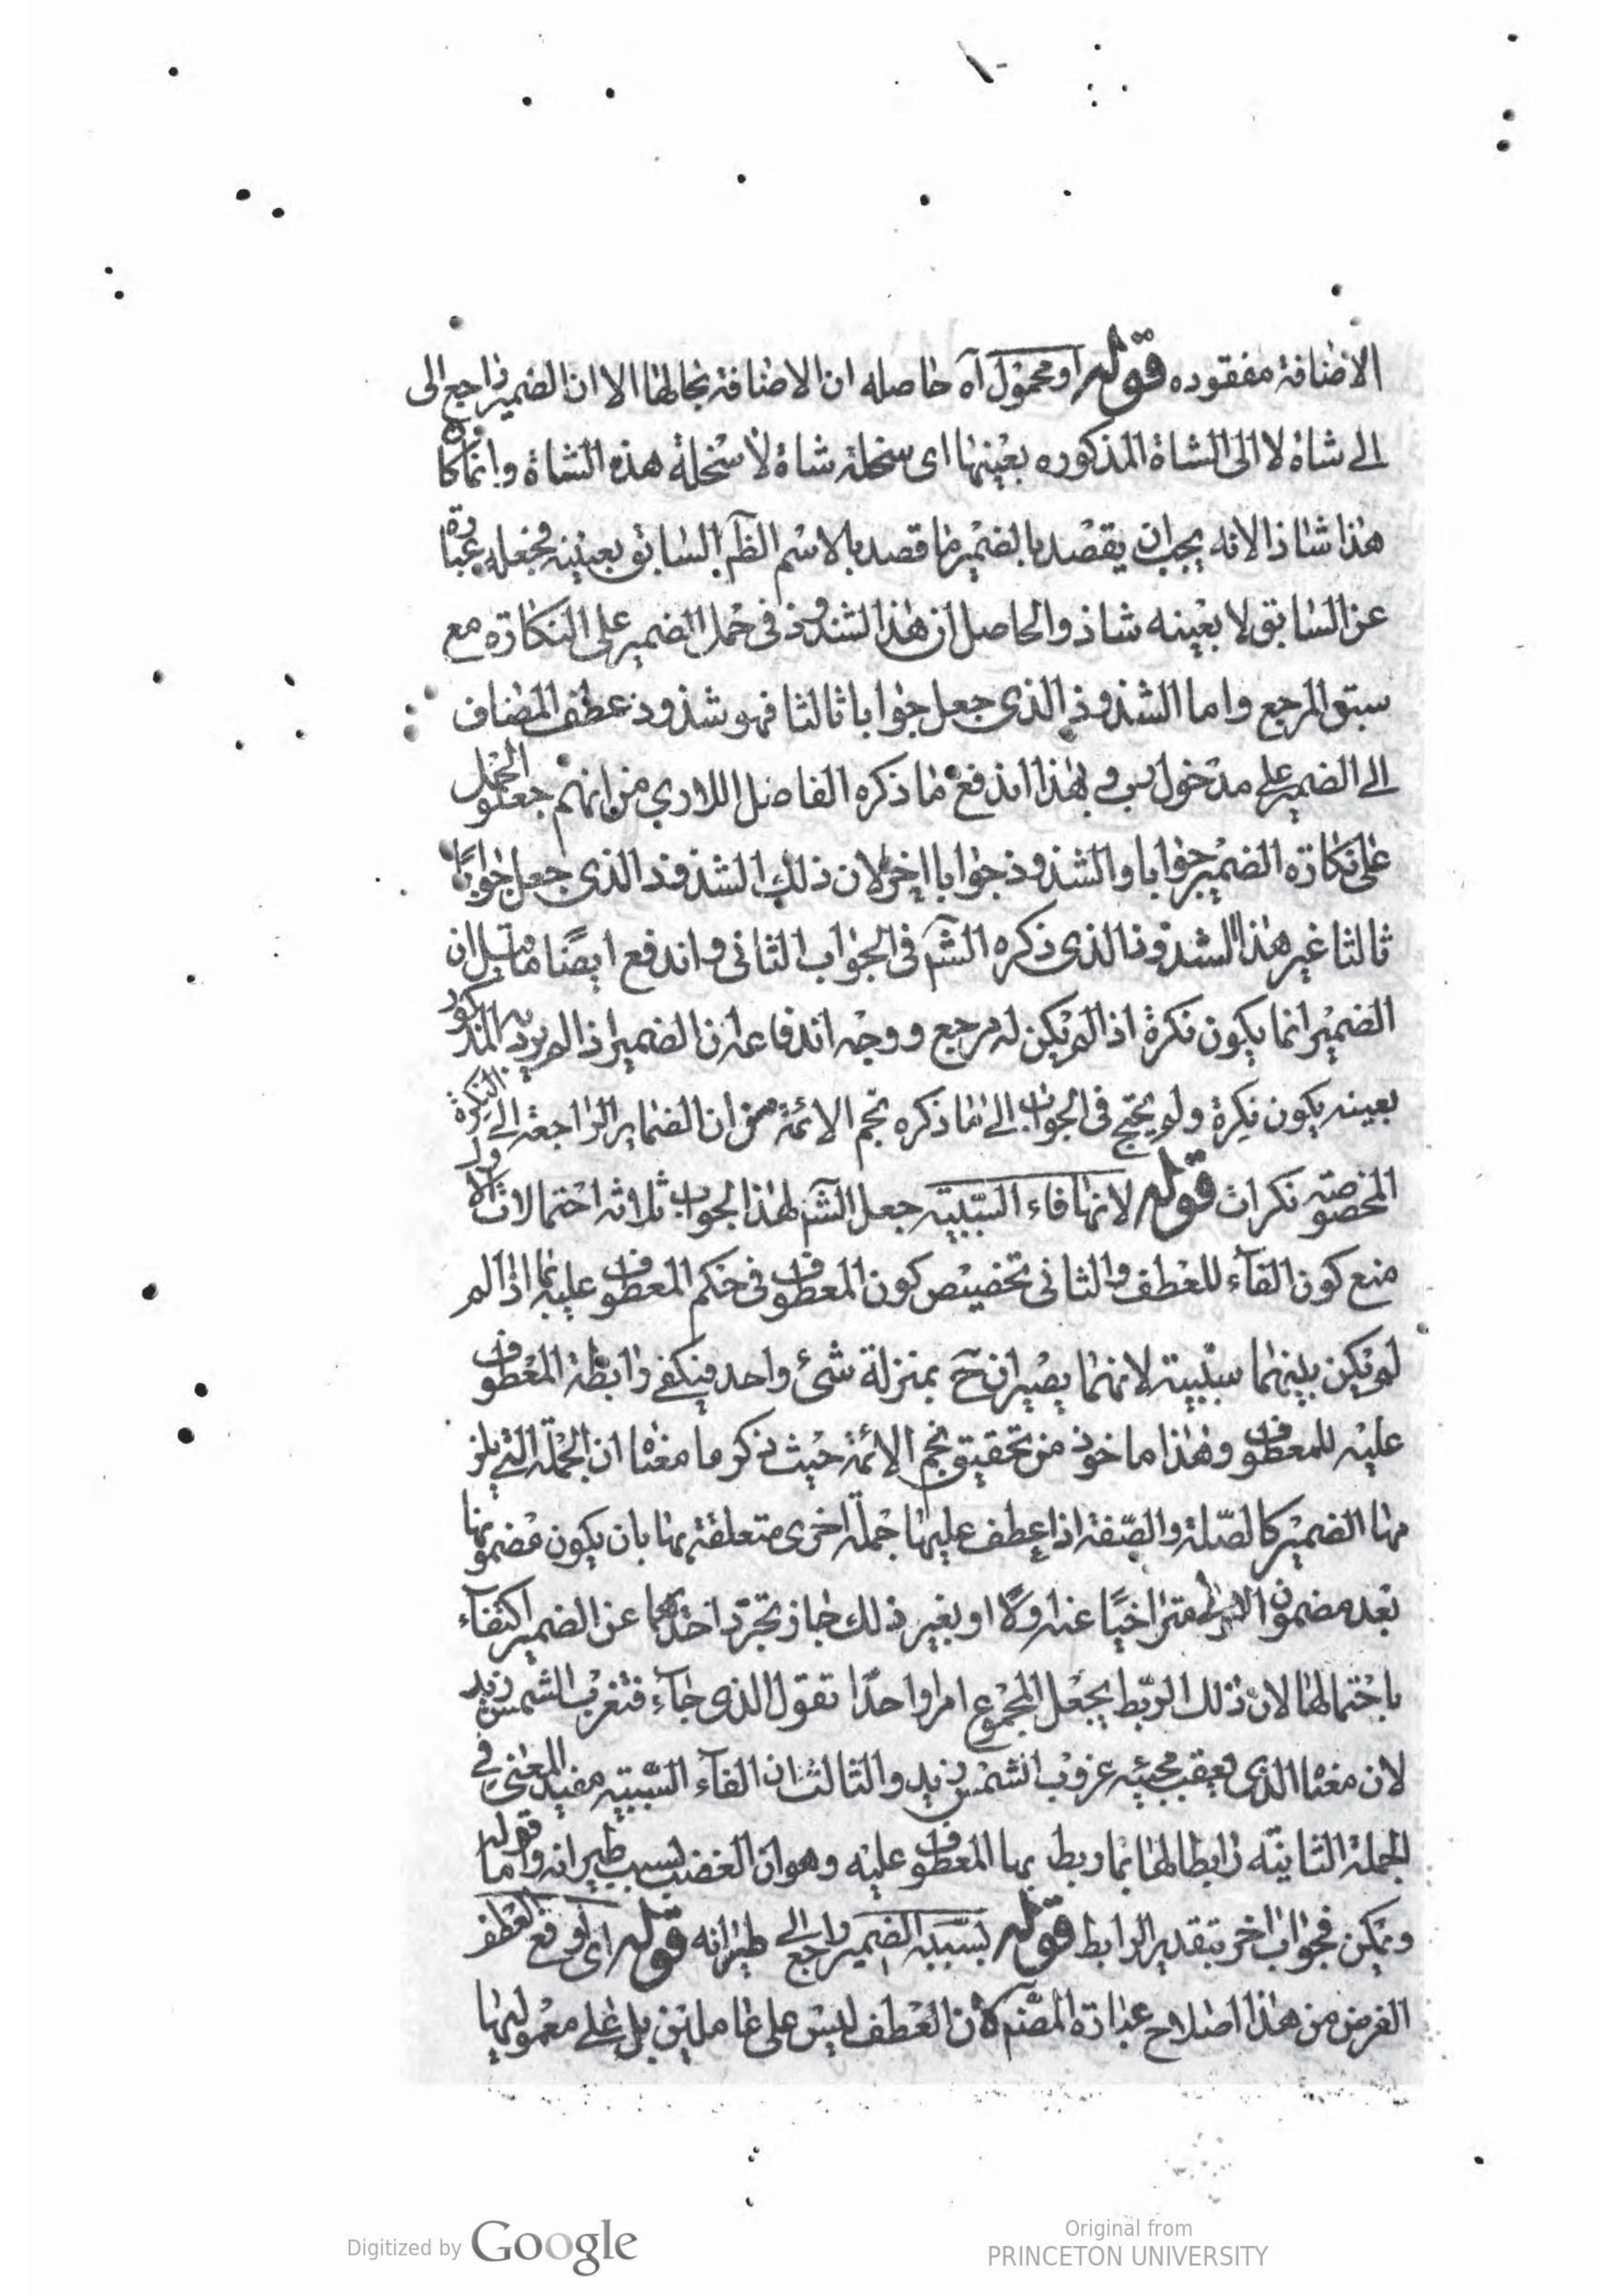 الاضافة مفقوده قوله او محمول اه حاصله ان الاضافة بحالها الا ان الضمير راجع الى
الى شاة لا الى الشاة المذكوره بعينها اى سخلة شاة لا سخلة هذه الشاة وانما كا
هذا شاذا لانه يجب ان يقصد بالضمير ما قصد بالاسم الظم السابق بعينه فجعله عبارة
عن السابق لا بعينه شاذ والحاصل ان هذا الشذوذ فى حمل الضمير على النكارة مع
سبق المرجع واما الشذوذ الذى جعل جوابا ثالثا فهو شذوذ عطف المضاف
الى الضمير على مدخول رب وبهذا اندفع ما ذكره الفاضل اللارى من انهم جعلو الحمل
على نكارة الضمير جوابا والشذوذ جوابا اخر لان ذلك الشذوذ الذى جعل جوابا
ثالثا غير هذا الشذوذ الذى ذكره الشم فى الجواب الثانى واندفع ايضا ما قيل ان
الضمير انما يكون نكرة اذا لم يكن له مرجع ووجه اندفاعه ان الضمير اذا لم يرد به المذكور
بعينه يكون نكرة ولم يحتج فى الجواب الى ما ذكره نجم الائمة من ان الضماير الراجعة الى النكرة
المخصوصة نكرات قوله لانها فاء السببية جعل الشم لهذا الجواب ثلاثة احتمالات الاول
منع كون الفاء للعطف والثانى تخصيص كون المعطوف فى حكم المعطوف عليه بما اذا لم
لم يكن بينهما سببية لانهما يصيران ح بمنزلة شئ واحد فيكفى رابطة المعطوف
عليه للمعطوف وهذا ماخوذ من تحقيق نجم الائمة حيث ذكر ما معناه ان الجملة التى يلز
مها الضمير كالصلة والصفة اذا عطف عليها جملة اخرى متعلقة بها بان يكون مضمونها
بعد مضمون الاولى متراخيا عنه اولا او بغير ذلك جاز تجرد احدهما عن الضمير اكتفاء
باحتمالها لان ذلك الربط يجعل المجموع امرا واحدا تقول الذى جاء فتغرب الشمس زيد
لان معناه الذى يعقب مجيئه غروب الشمس زيد والثالث ان الفاء السببية مفيد لمعنى فى
الجملة الثانية رابطا لها بما ربط بها المعطوف عليه وهو ان الغضب بسبب طيرانه واما قوله
ويمكن فجواب اخر بتقدير الرابط قوله بسببه الضمير راجع الى طيرانه قوله اى اوقع العطف
الغرض من هذا اصلاح عبارة المصنم لان العطف ليس على عاملين بل على معموليها
Digitized by Google
Original from
PRINCETON UNIVERSITY